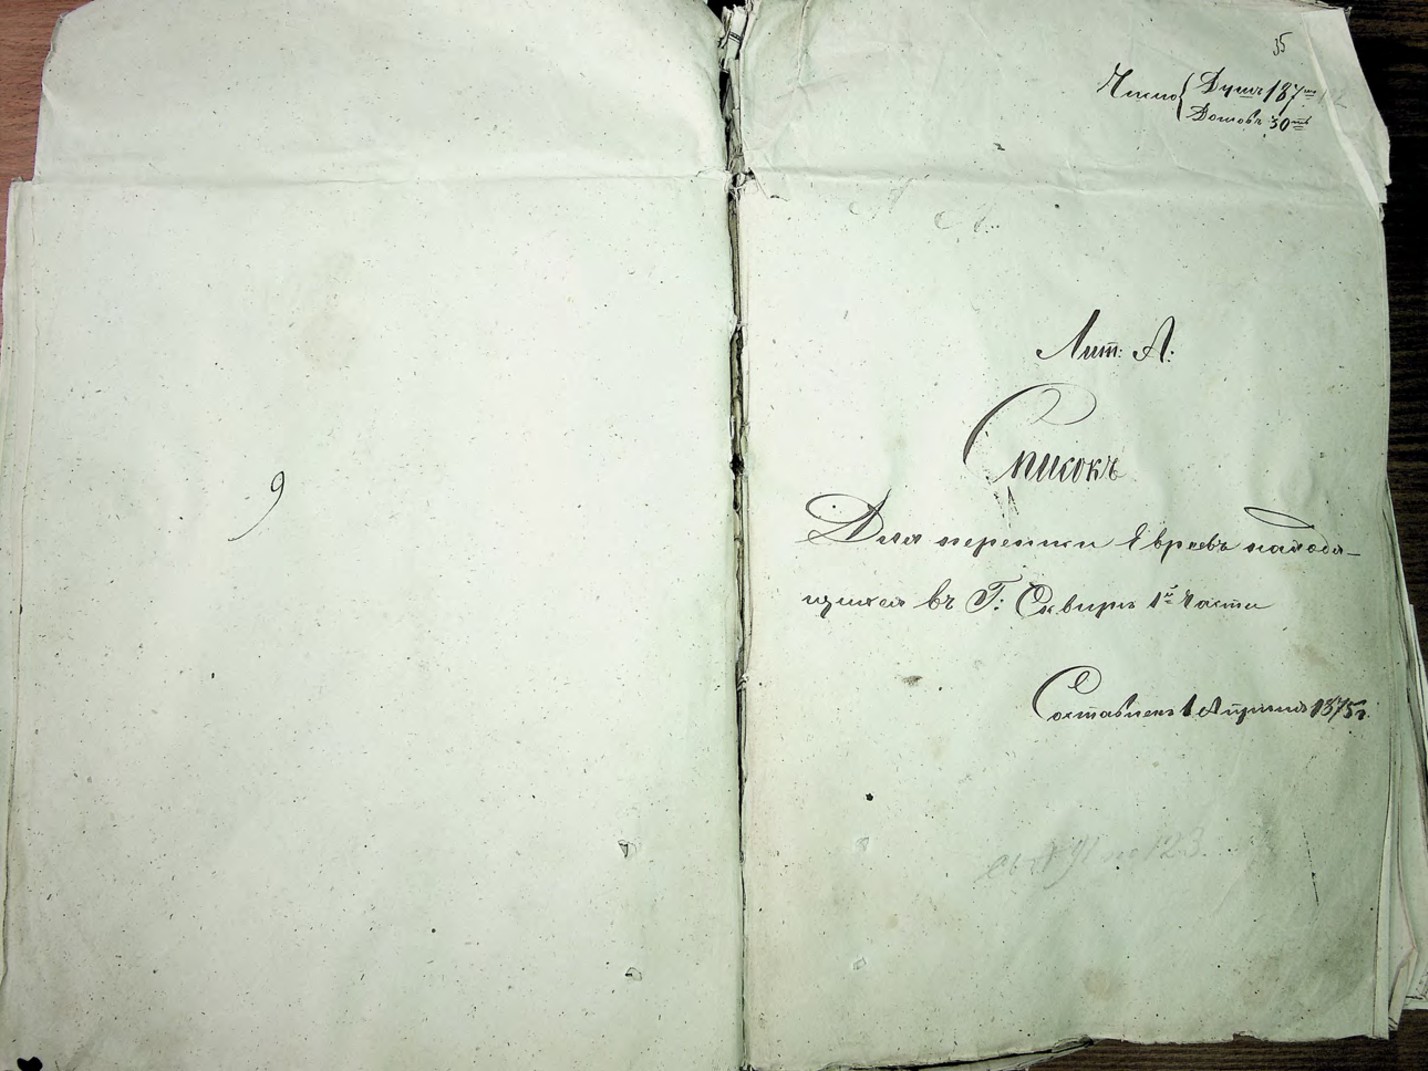 9
35
Число { Душъ 187мь
Домовъ 30ть
Лит: А:
Списокъ
Для переписи Евреевъ находя-
щихся въ Г: Сквирѣ 1й Части
Составленъ 1 Апрѣля 1875 г.
по 123